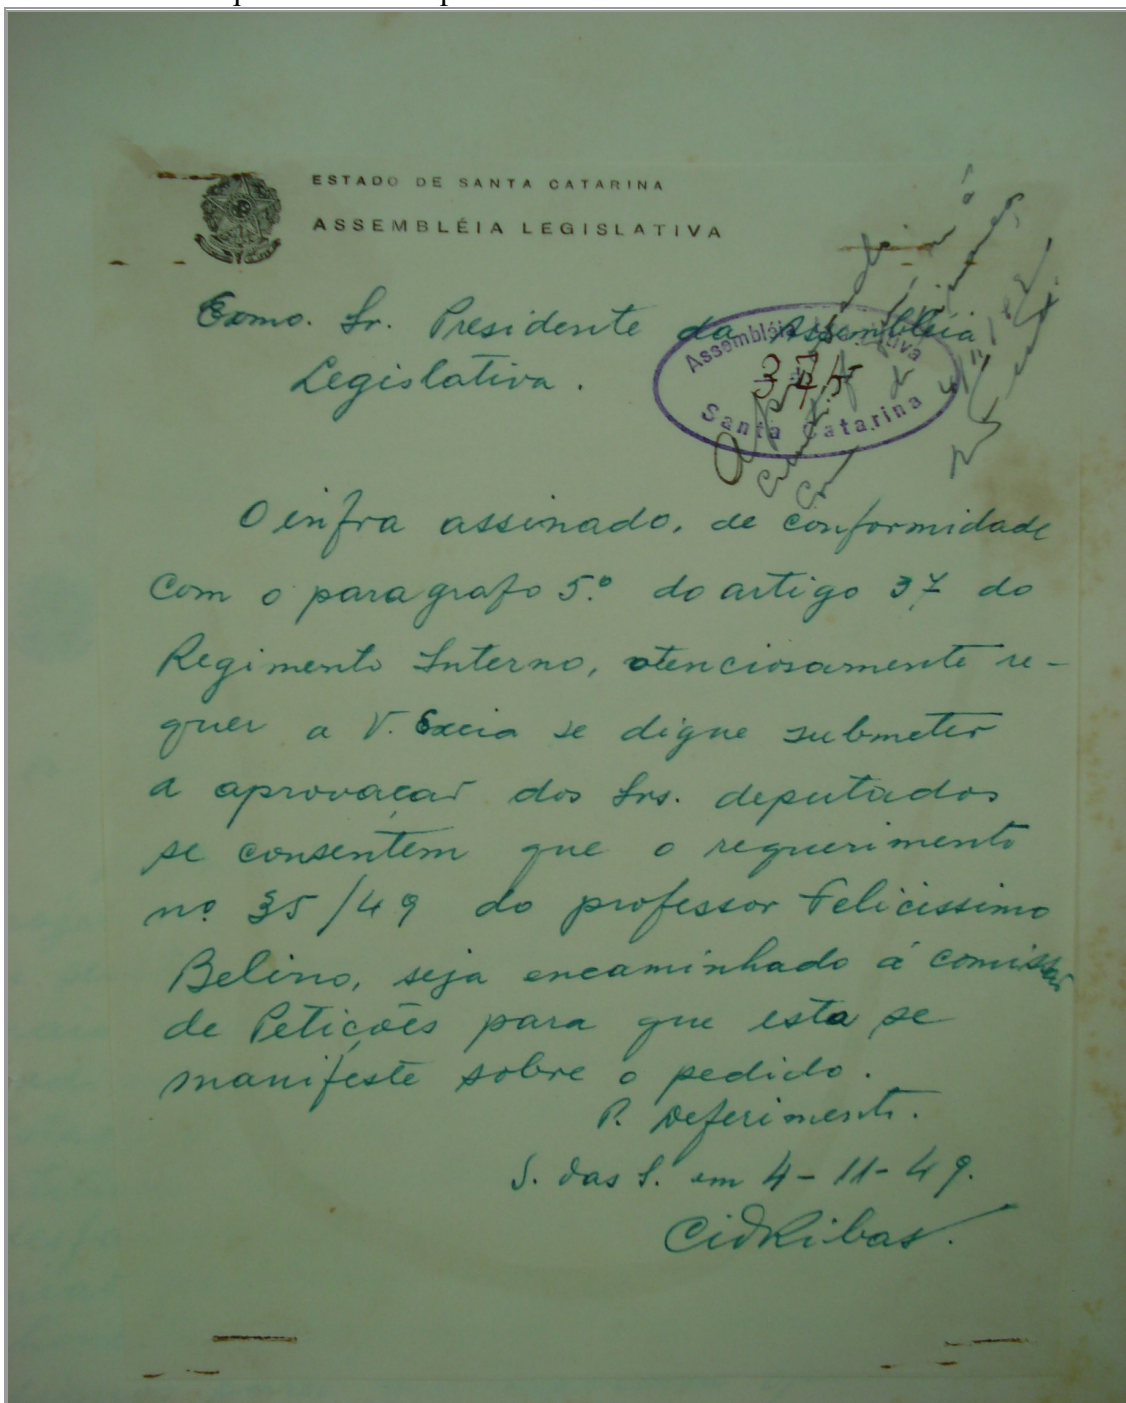 ESTADO DE SANTA CATARINA
ASSEMBLÉIA LEGISLATIVA
Exmo. Sr. Presidente da Assembléia
Legislativa.
Assembléia Legislativa
Santa Catarina
O infra assinado, de conformidade
com o paragrafo 5.º do artigo 37 do
Regimento Interno, atenciosamente re-
quer a V. Excia se digne submeter
a aprovaçaõ dos Srs. deputados
se consentem que o requerimento
nº 35/49 do professor Felicissimo
Belino, seja encaminhado á comissão
de Petições para que esta se
manifeste sobre o pedido.
P. Deferimento.
S. das S. em 4-11-49.
Cid Ribas.